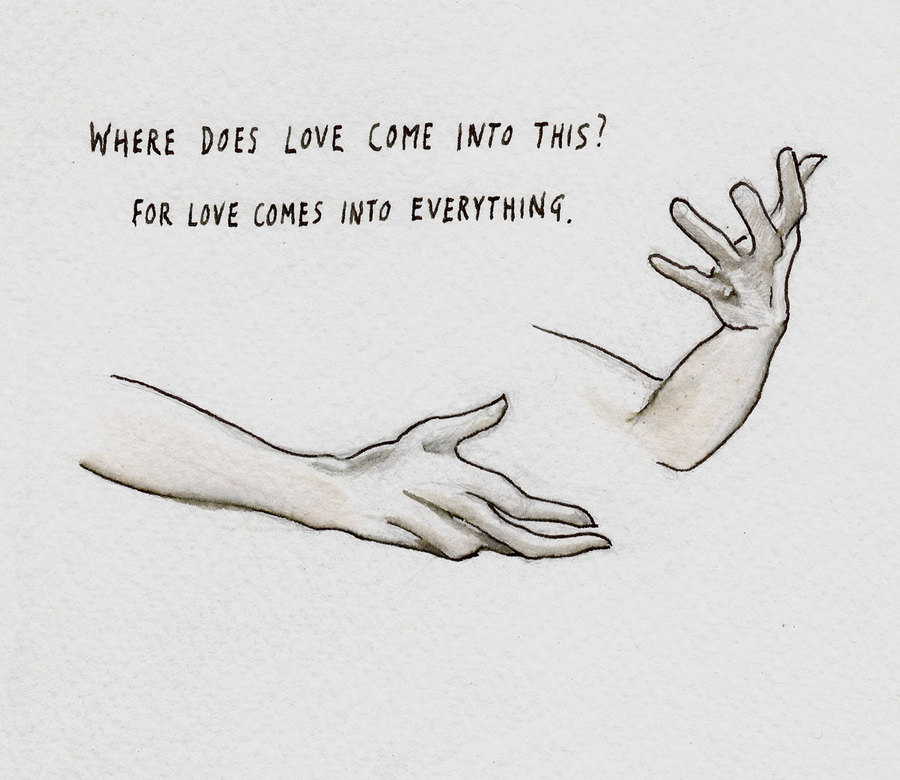 WHERE DOES LOVE COME INTO THIS?
FOR LOVE COMES INTO EVERYTHING.